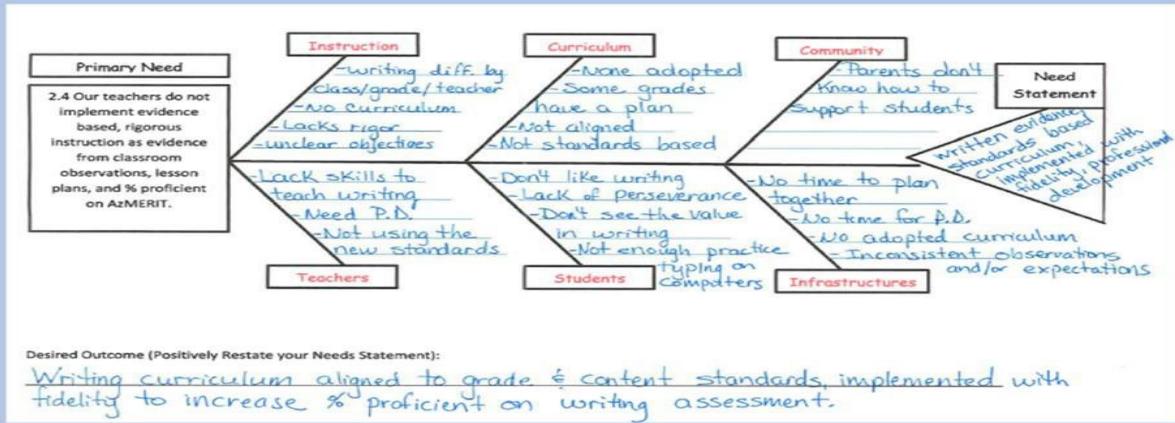 Primary Need
2.4 Our teachers do not
implement evidence
based, rigorous
instruction as evidence
from classroom
observations, lesson
plans, and % proficient
on AzMERIT.
Instruction
-writing diff. by
class/grade/teacher
-No Curriculum
-Lacks rigor
-unclear objectives
Curriculum
-None adopted
-Some grades
have a plan
-Not aligned
-Not standards based
Community
-Parents don't
Know how to
Support students
Need
Statement
written evidence,
standards based
curriculum,
implemented with
fidelity, professional
development
-Lack skills to
teach writing
-Need P.D.
-Not using the
new standards
Teachers
-Don't like writing
-Lack of perseverance
-Don't see the value
in writing
-Not enough practice
typing on
computers
Students
-No time to plan
together
-No time for P.D.
-No adopted curriculum
-Inconsistent observations
and/or expectations
Infrastructures
Desired Outcome (Positively Restate your Needs Statement):
Writing curriculum aligned to grade & content standards, implemented with
fidelity to increase % proficient on writing assessment.